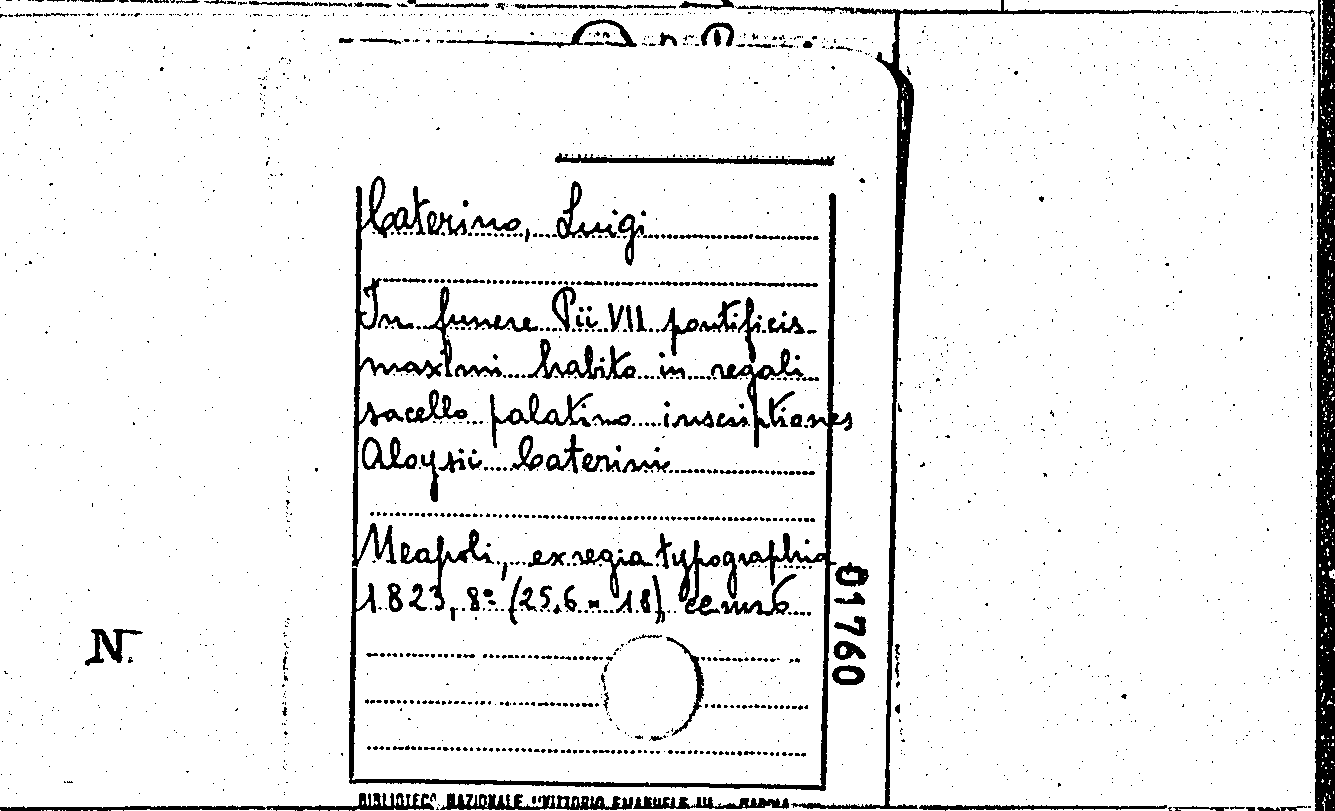 Caterino, Luigi
In funere Pii VII pontificis
maximi habito in regali
sacello palatino inscriptiones
Aloysii Caterini
Neapoli, ex regia typographia
1823, 8º (25,6 x 18)
01760
N.
BIBLIOTECA NAZIONALE "VITTORIO EMANUELE III" - NAPOLI